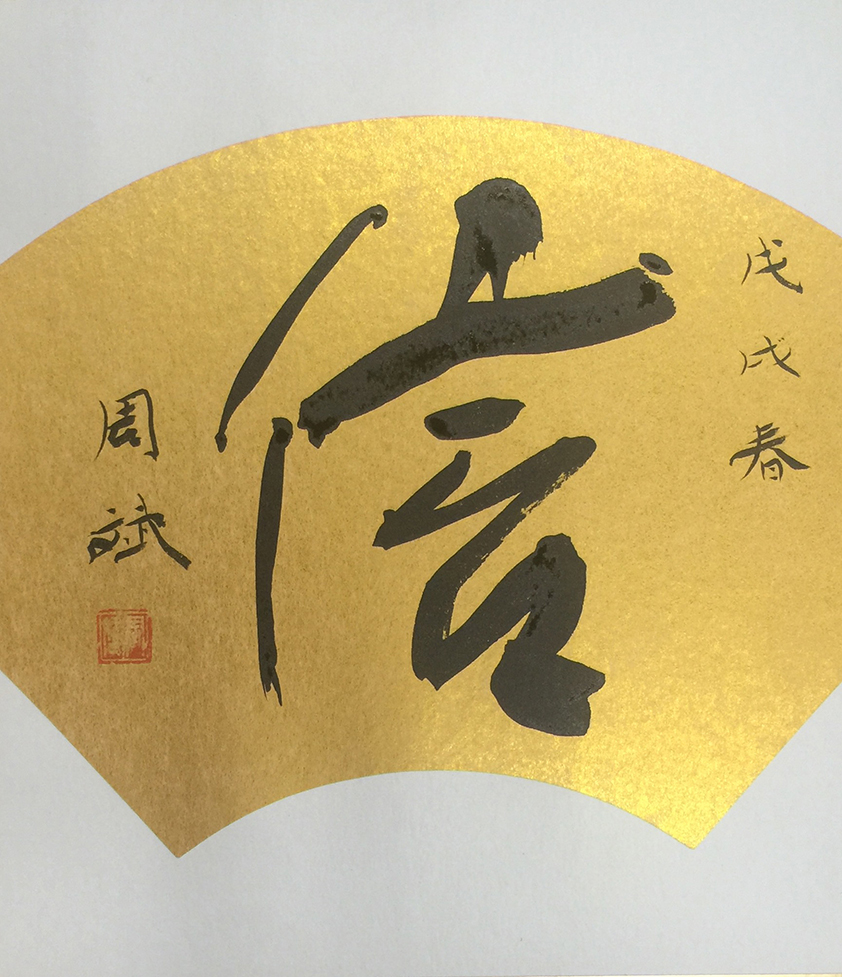 戊戌春
信
周斌